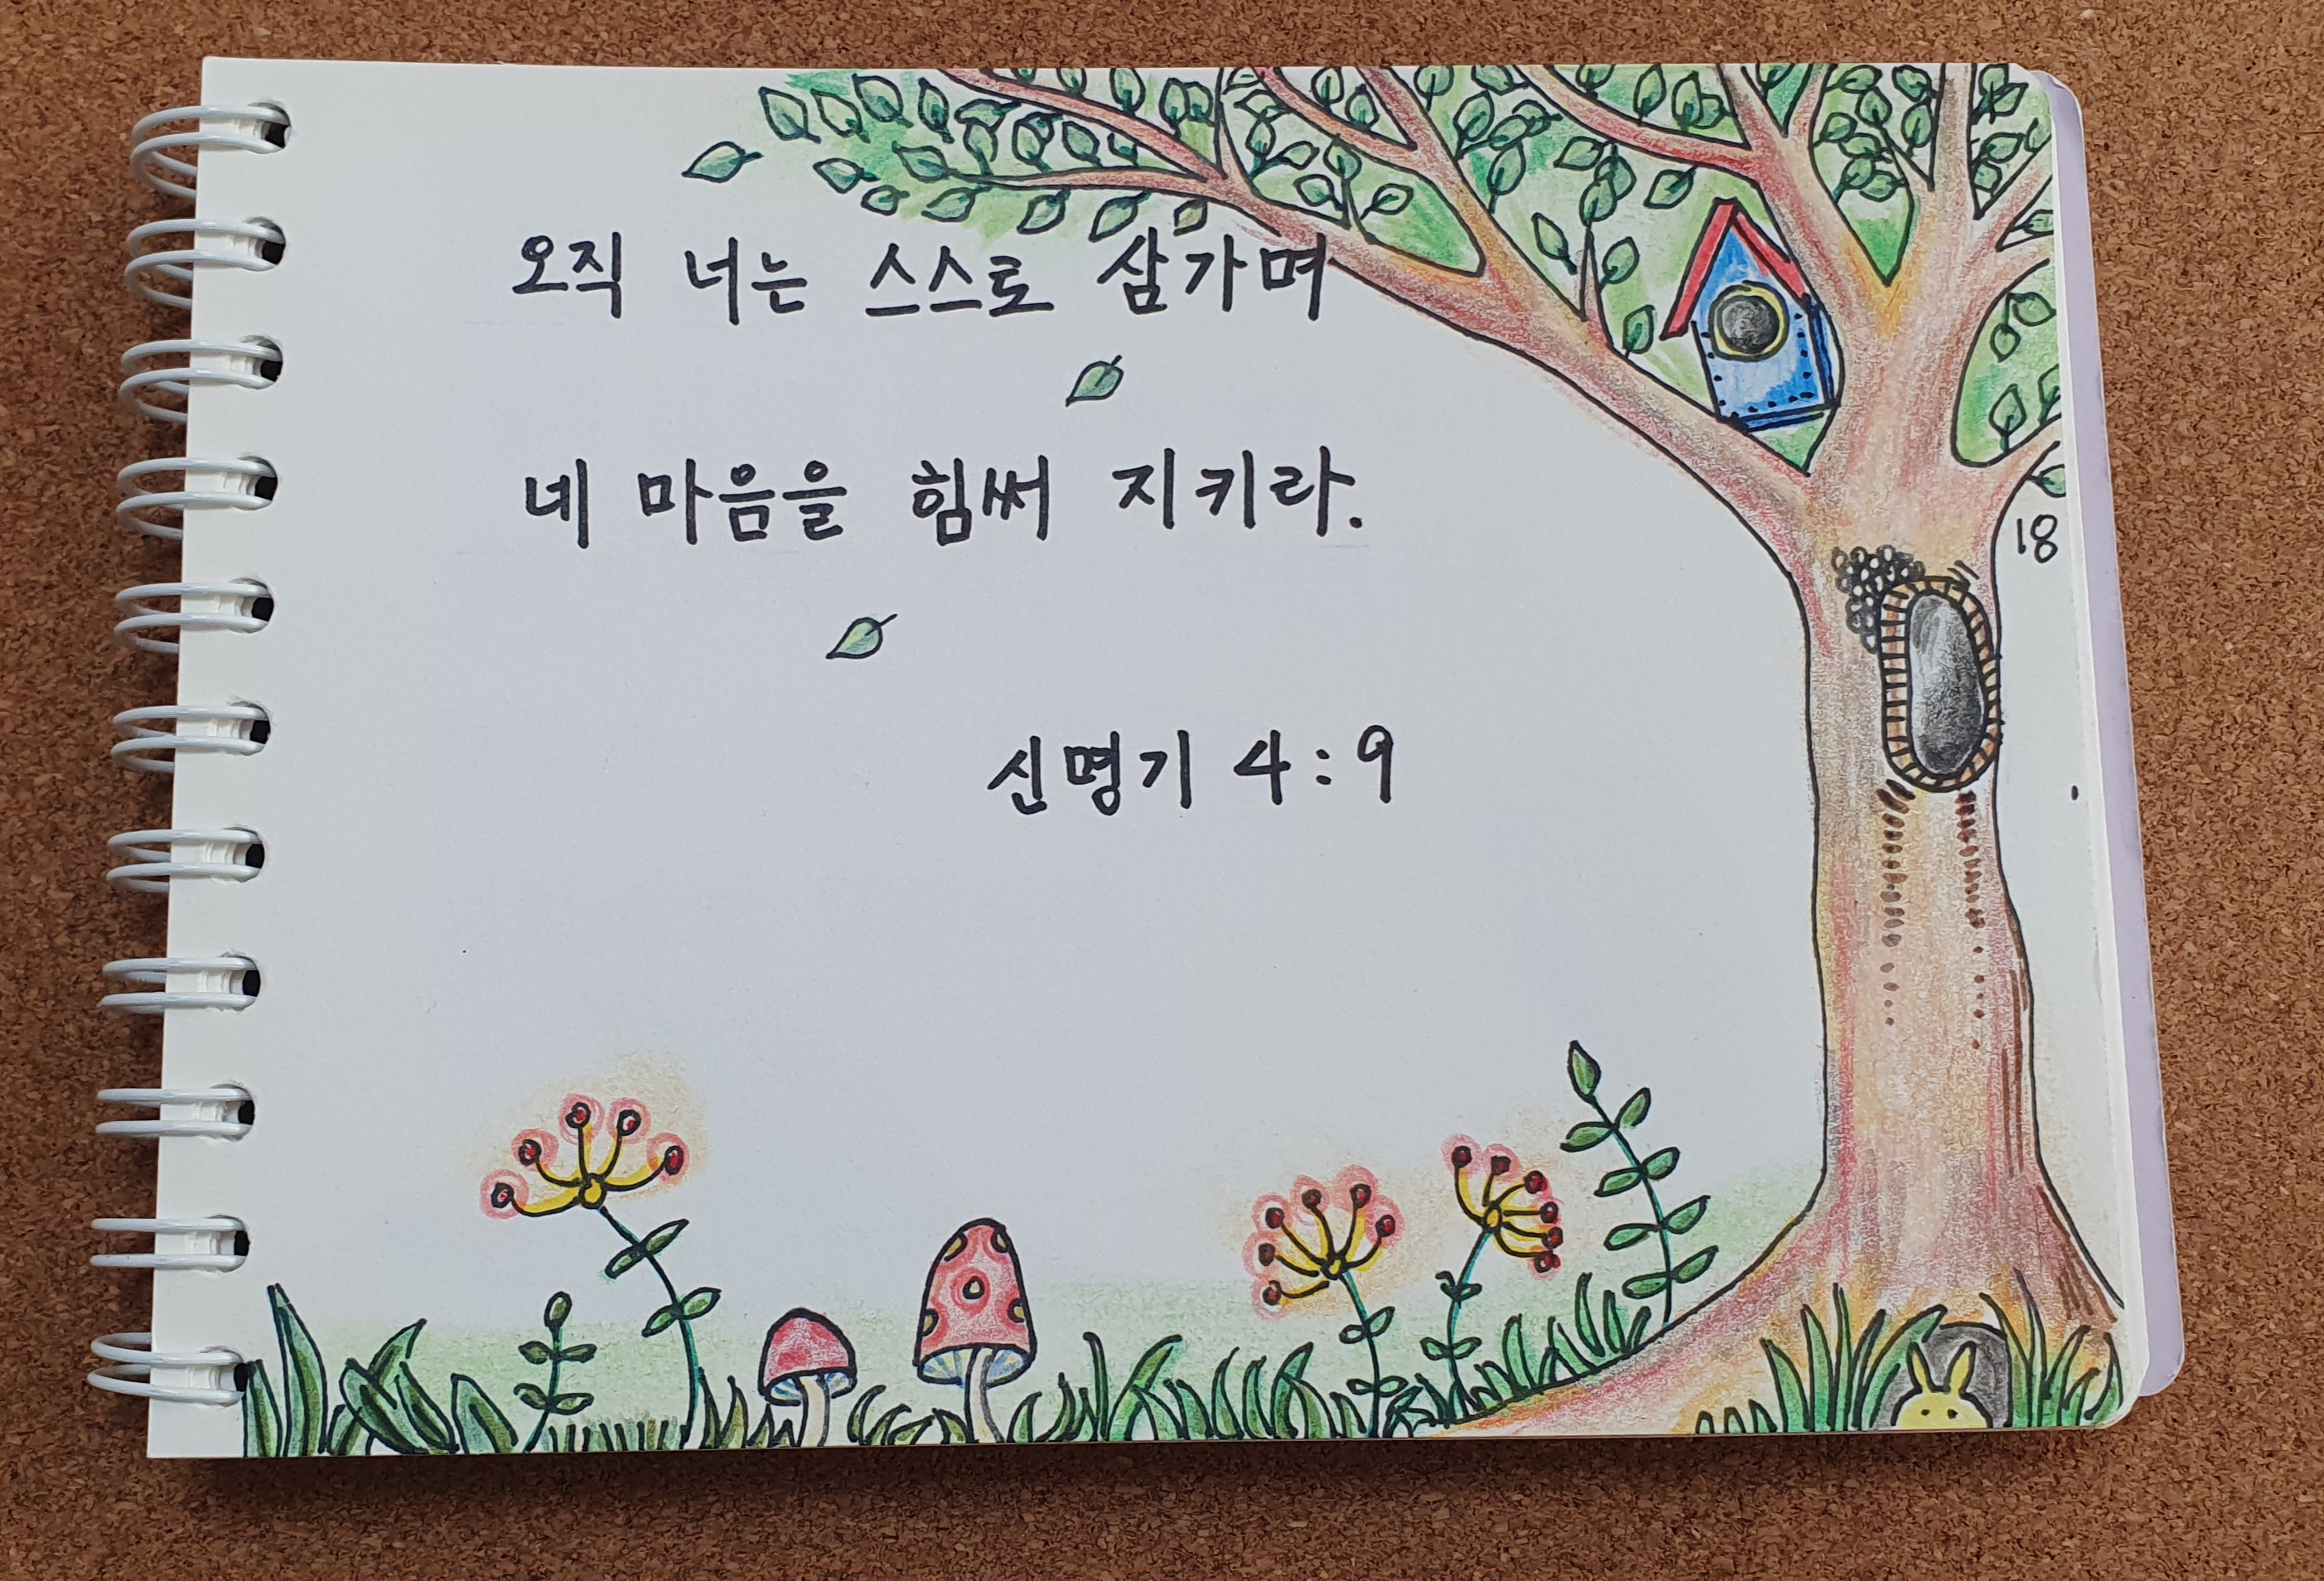 오직 너는 스스로 삼가며
네 마음을 힘써 지키라.
18
신명기 4:9